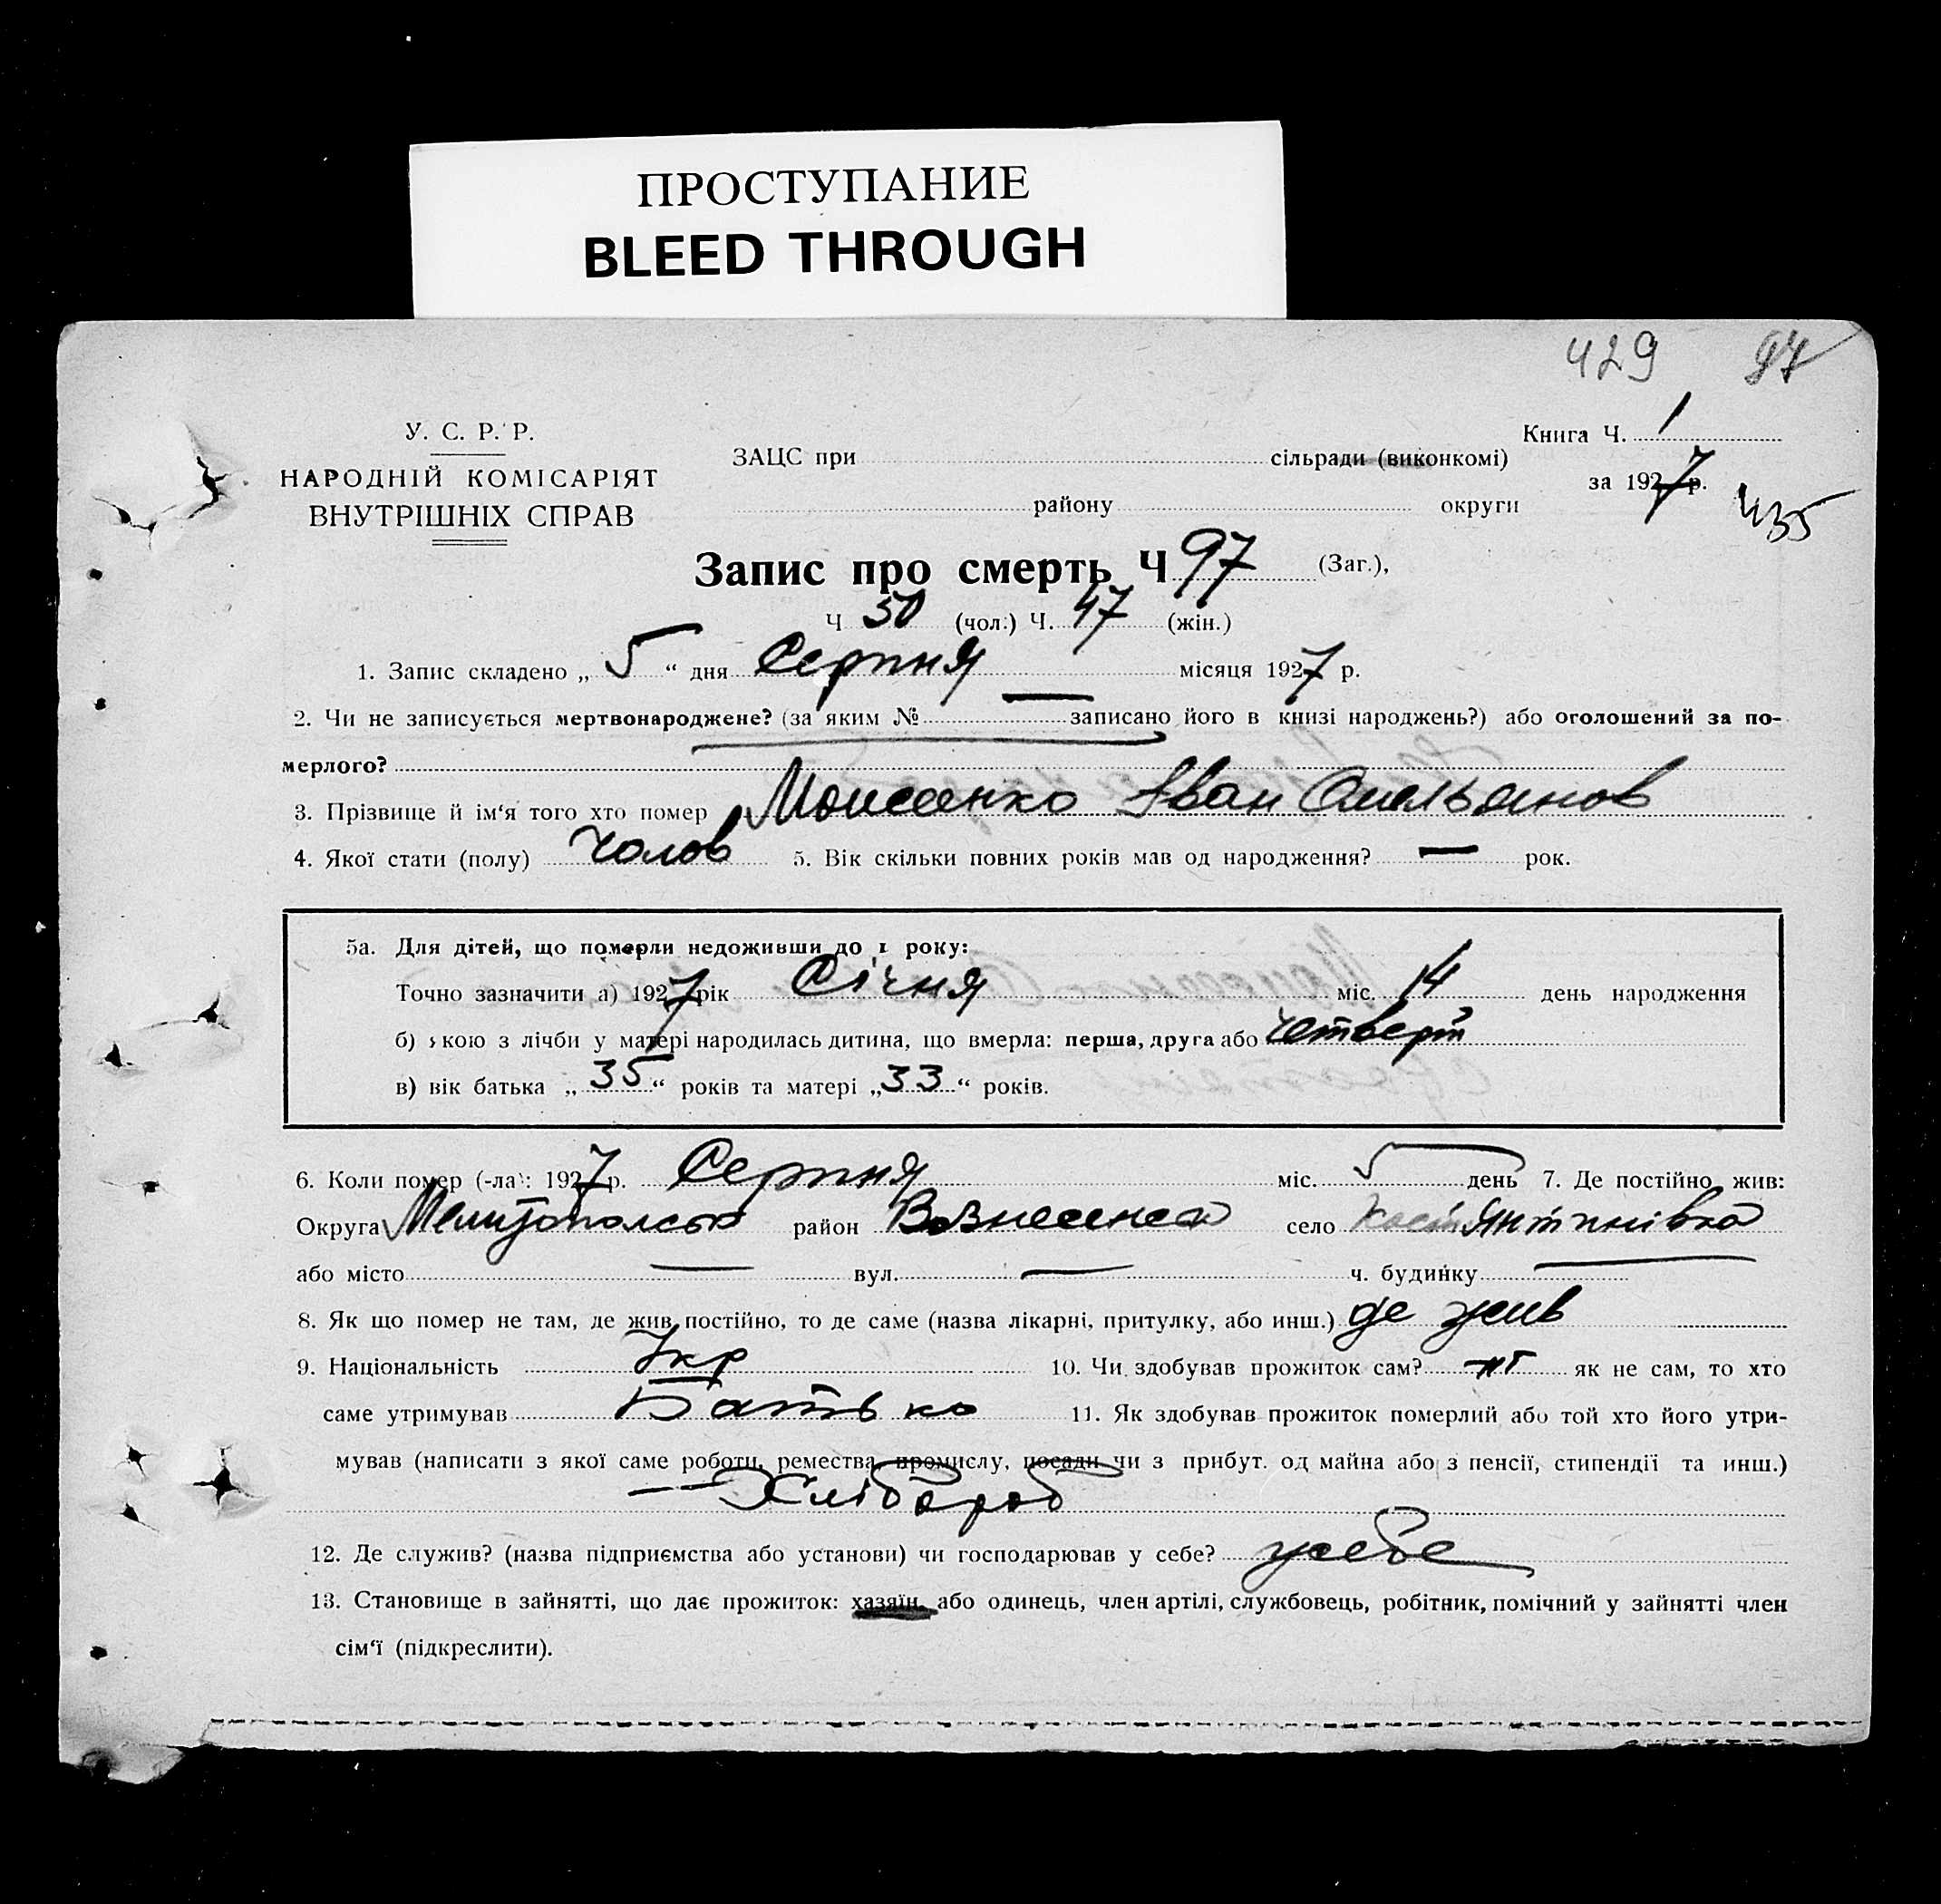 ПРОСТУПАНИЕ
BLEED THROUGH
429 97
У. С. Р. Р.
НАРОДНІЙ КОМІСАРІЯТ
ВНУТРІШНІХ СПРАВ
ЗАЦС при сільради (виконкомі)
району округи
Книга Ч. 1
за 1927 р.
435
Запис про смерть Ч 97 (Заг.),
Ч 50 (чол.) Ч. 47 (жін.)
1. Запис складено „ 5 “ дня Серпня місяця 1927 р.
2. Чи не записується мертвонароджене? (за яким № — записано його в книзі народжень?) або оголошений за по-
мерлого?
3. Прізвище й ім‘я того хто помер Моисеенко Іван Омельянов
4. Якої стати (полу) Чолов 5. Вік скільки повних років мав од народження? — рок.
5а. Для дітей, що померли недоживши до 1 року:
Точно зазначити а) 1927 рік Січня міс. 14 день народження
б) якою з лічби у матері народилась дитина, що вмерла: перша, друга або четверт
в) вік батька „ 35 “ років та матері „ 33 “ років.
6. Коли помер (-ла): 1927 р. Серпня міс. 5 день 7. Де постійно жив:
Округа Мелитопольськ район Вознесенськ село Костянтинівка
або місто — вул. — ч. будинку —
8. Як що помер не там, де жив постійно, то де саме (назва лікарні, притулку, або инш.) де жив
9. Національність Укр 10. Чи здобував прожиток сам? як не сам, то хто
саме утримував Батько 11. Як здобував прожиток померлий або той хто його утри-
мував (написати з якої саме роботи, ремества, промислу, посади чи з прибут. од майна або з пенсії, стипендії та инш.)
Хлібороб
12. Де служив? (назва підприємства або установи) чи господарював у себе? у себе
13. Становище в зайнятті, що дає прожиток: хазяїн, або одинець, член артілі, службовець, робітник, помічний у зайнятті член
сім‘ї (підкреслити).